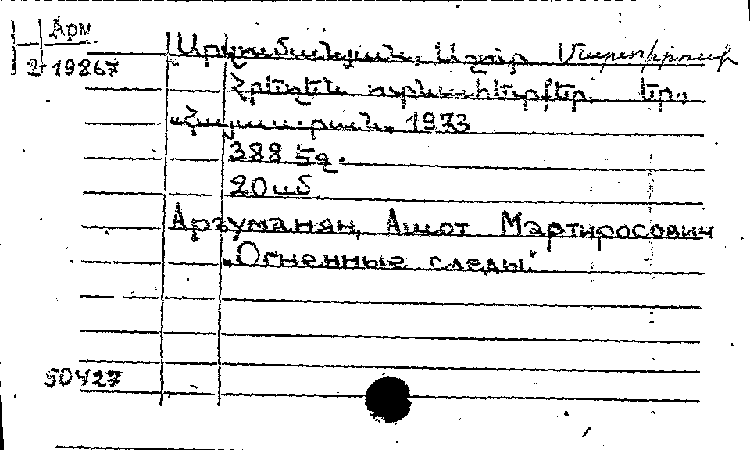 Арм
2-19867
Արզումանյան, Աշոտ Մարտիրոսի
Հրեղեն ուրվագծեր. Եր.,
«Հայաստան», 1973
388 էջ.
20սմ
Арзуманян, Ашот Мартиросович
„Огненные следы“
50427